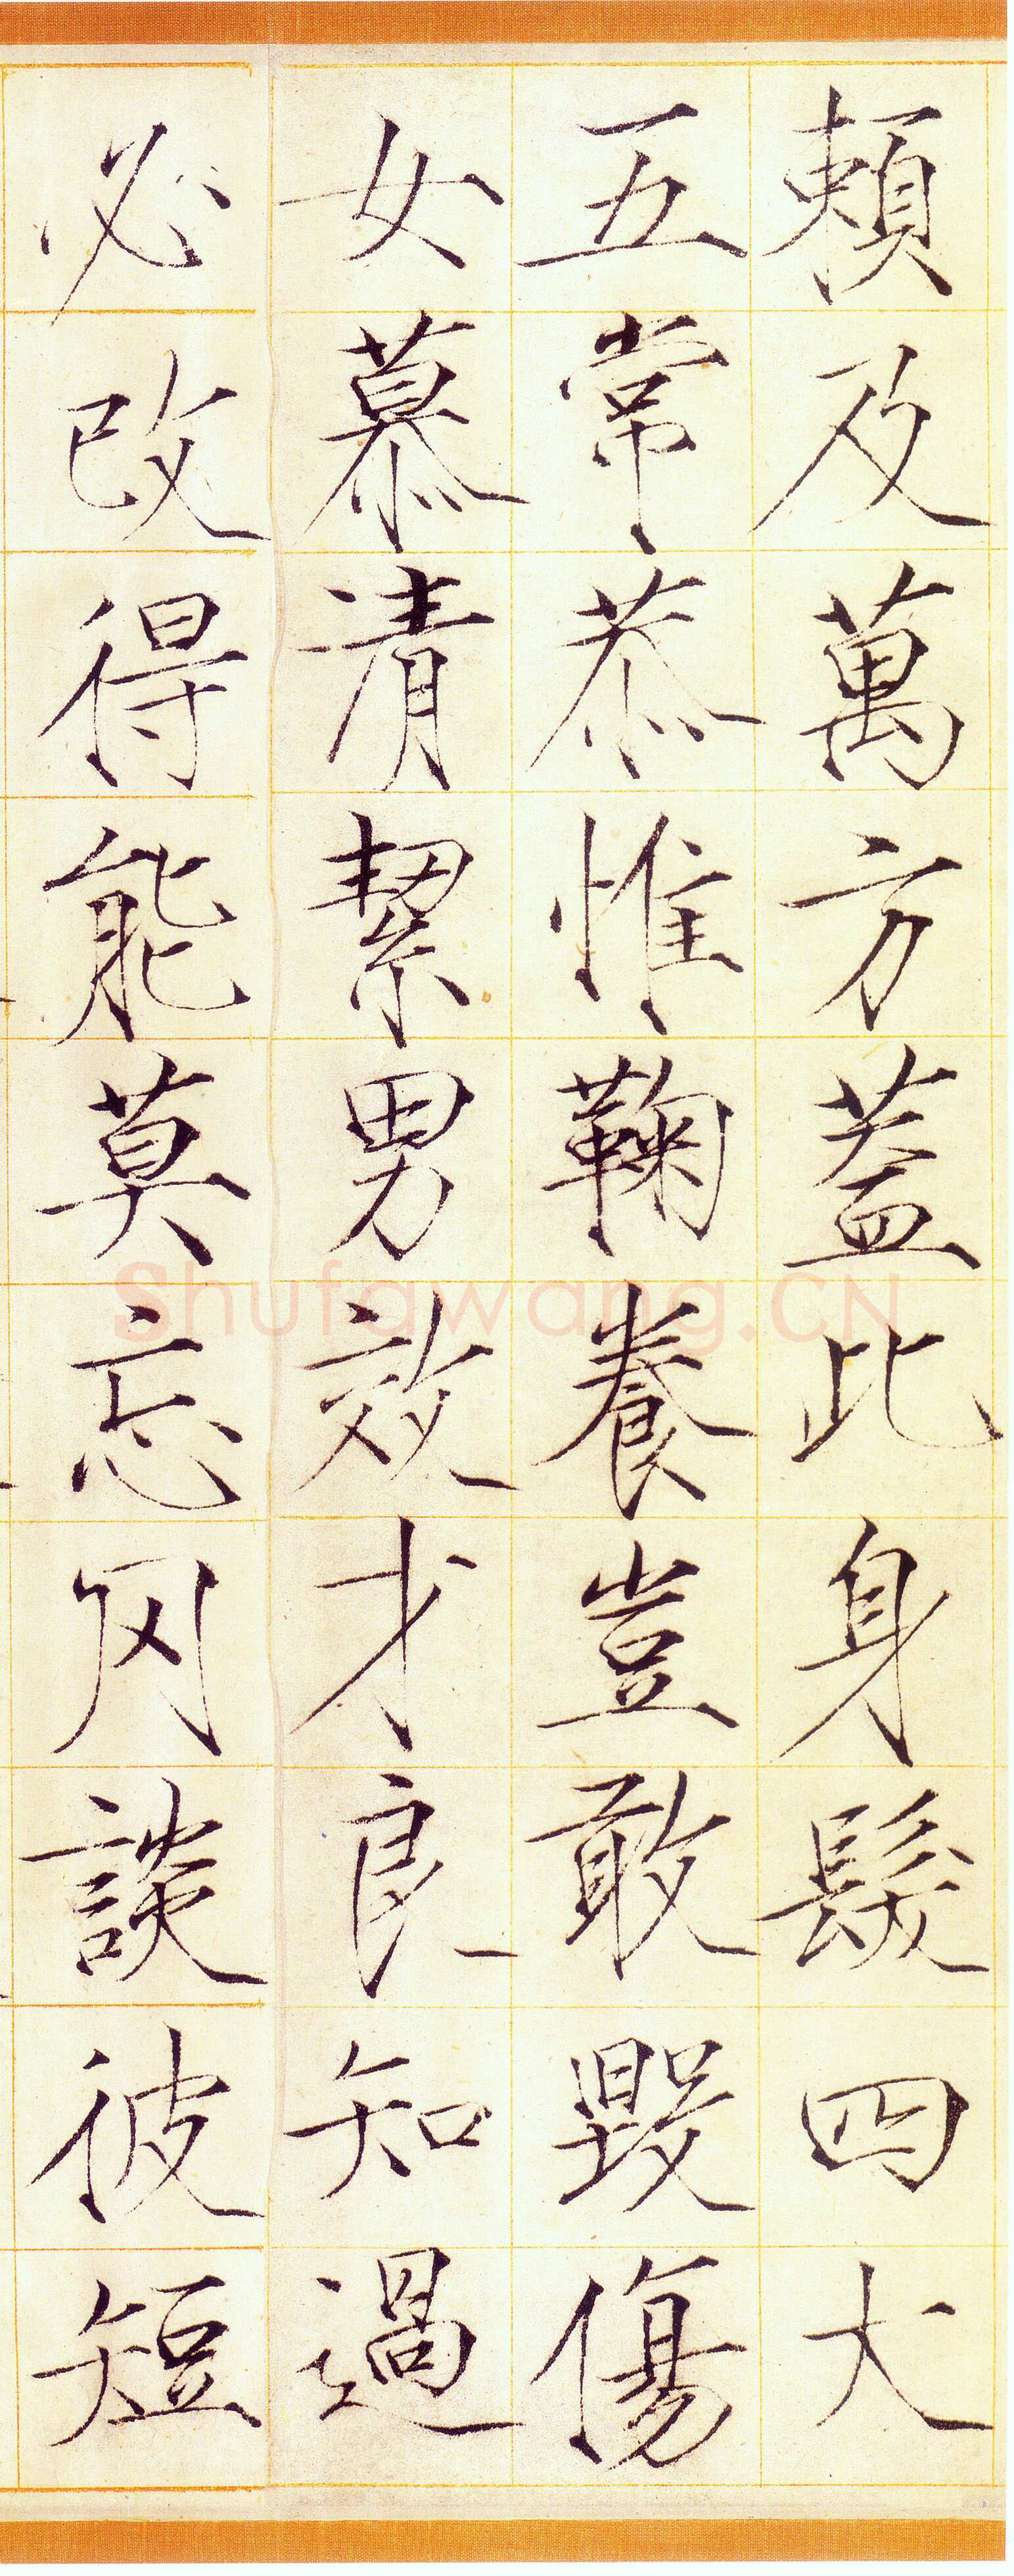 頼及萬方蓋此身髮四大
五常恭惟鞠養豈敢毀傷
女慕清潔男效才良知過
必改得能莫忘罔談彼短
Shufawang.CN